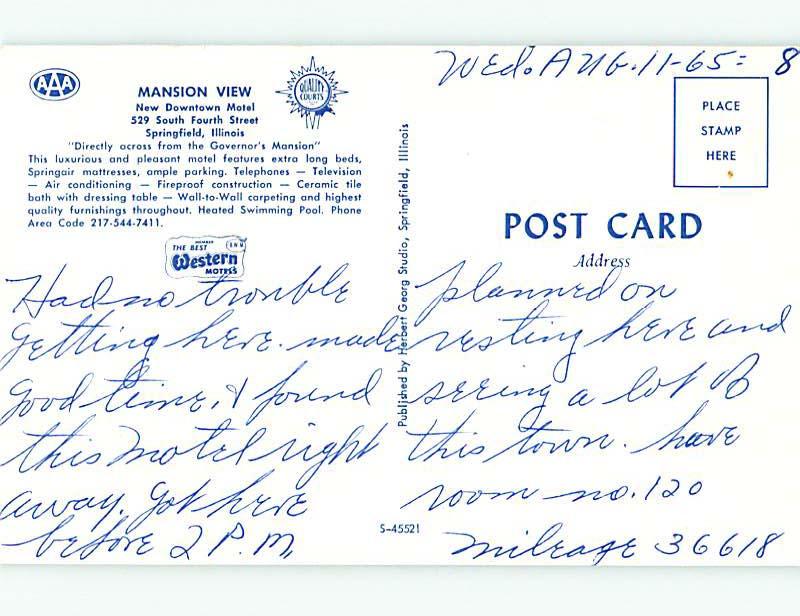 Wed. AUG. 11-65= 8
AAA
MANSION VIEW
New Downtown Motel
529 South Fourth Street
Springfield, Illinois
QUALITY
COURTS
"Directly across from the Governor's Mansion"
This luxurious and pleasant motel features extra long beds,
Springair mattresses, ample parking. Telephones — Television
— Air conditioning — Fireproof construction — Ceramic tile
bath with dressing table — Wall-to-Wall carpeting and highest
quality furnishings throughout. Heated Swimming Pool. Phone
Area Code 217-544-7411.
MEMBER
THE BEST
Western
MOTELS
Had no trouble
getting here. made
good time, & found
this motel right
away. got here
before 2 P.M,
S-45521
Published by Herbert Georg Studio, Springfield, Illinois
PLACE
STAMP
HERE
POST CARD
Address
planned on
resting here and
seeing a lot of
this town. have
room no. 120
mileage 36618